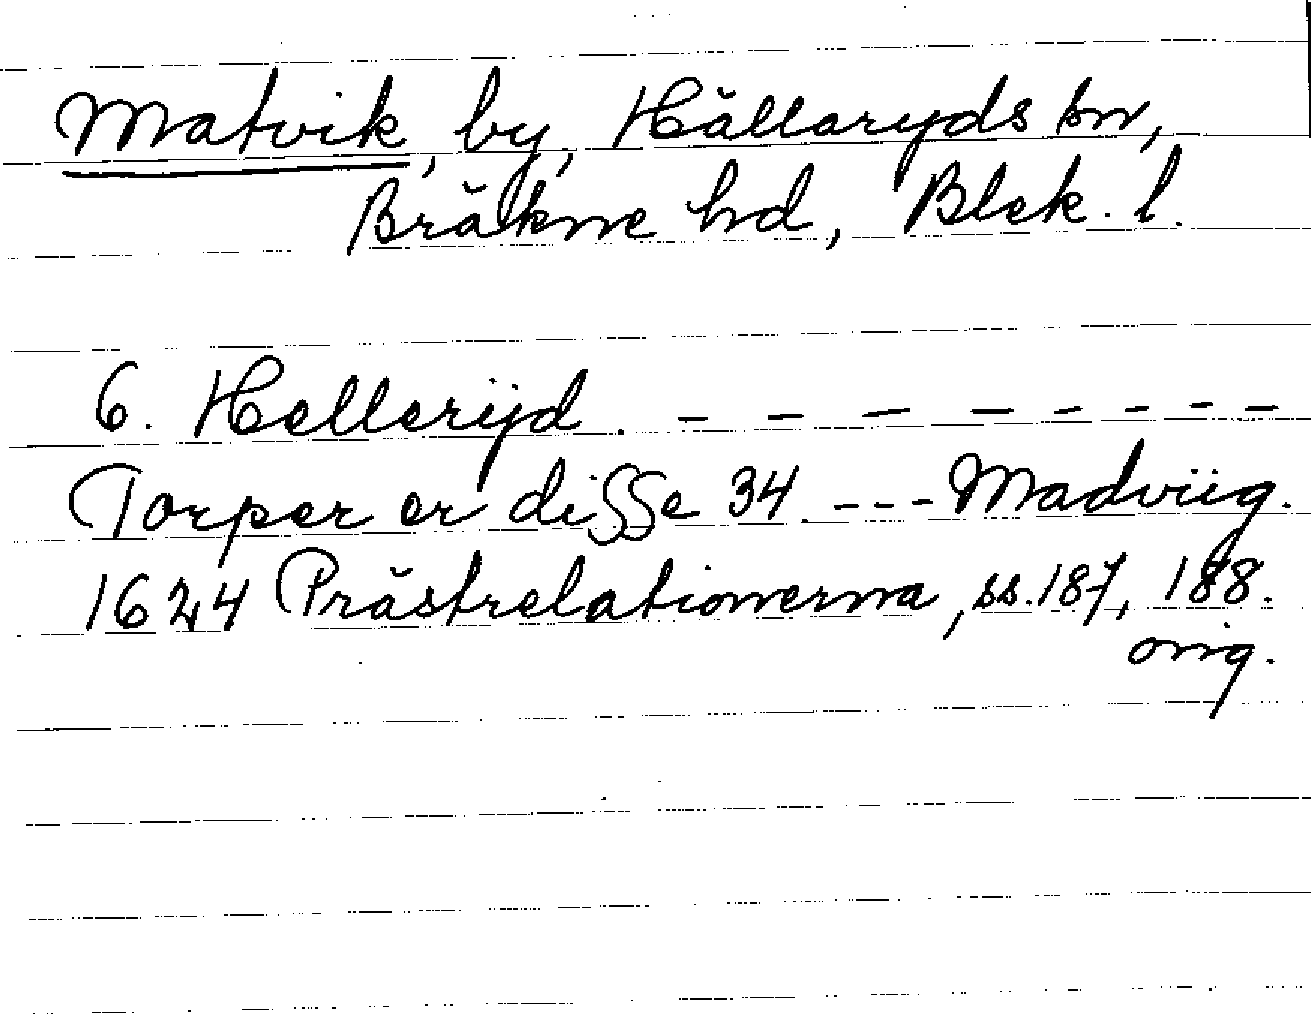 Matvik, by, Hällaryds sn,
Bräkne hd, Blek. l.
6. Hellerijd. - - - - - - - -
Torper er disse 34. --- Madviig.
1624 Prästrelationerna, ss. 187, 188.
orig.